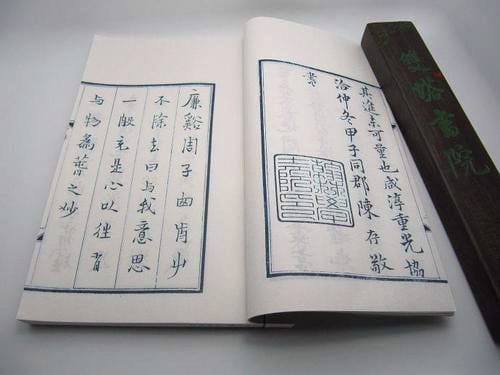 其進未可量也咸淳重光協
洽仲冬甲子同郡陳存敬
書
廉谿周子囱前艸
不除去曰与我意思
一般充是心以往有
与物為萅之妙
雙書院